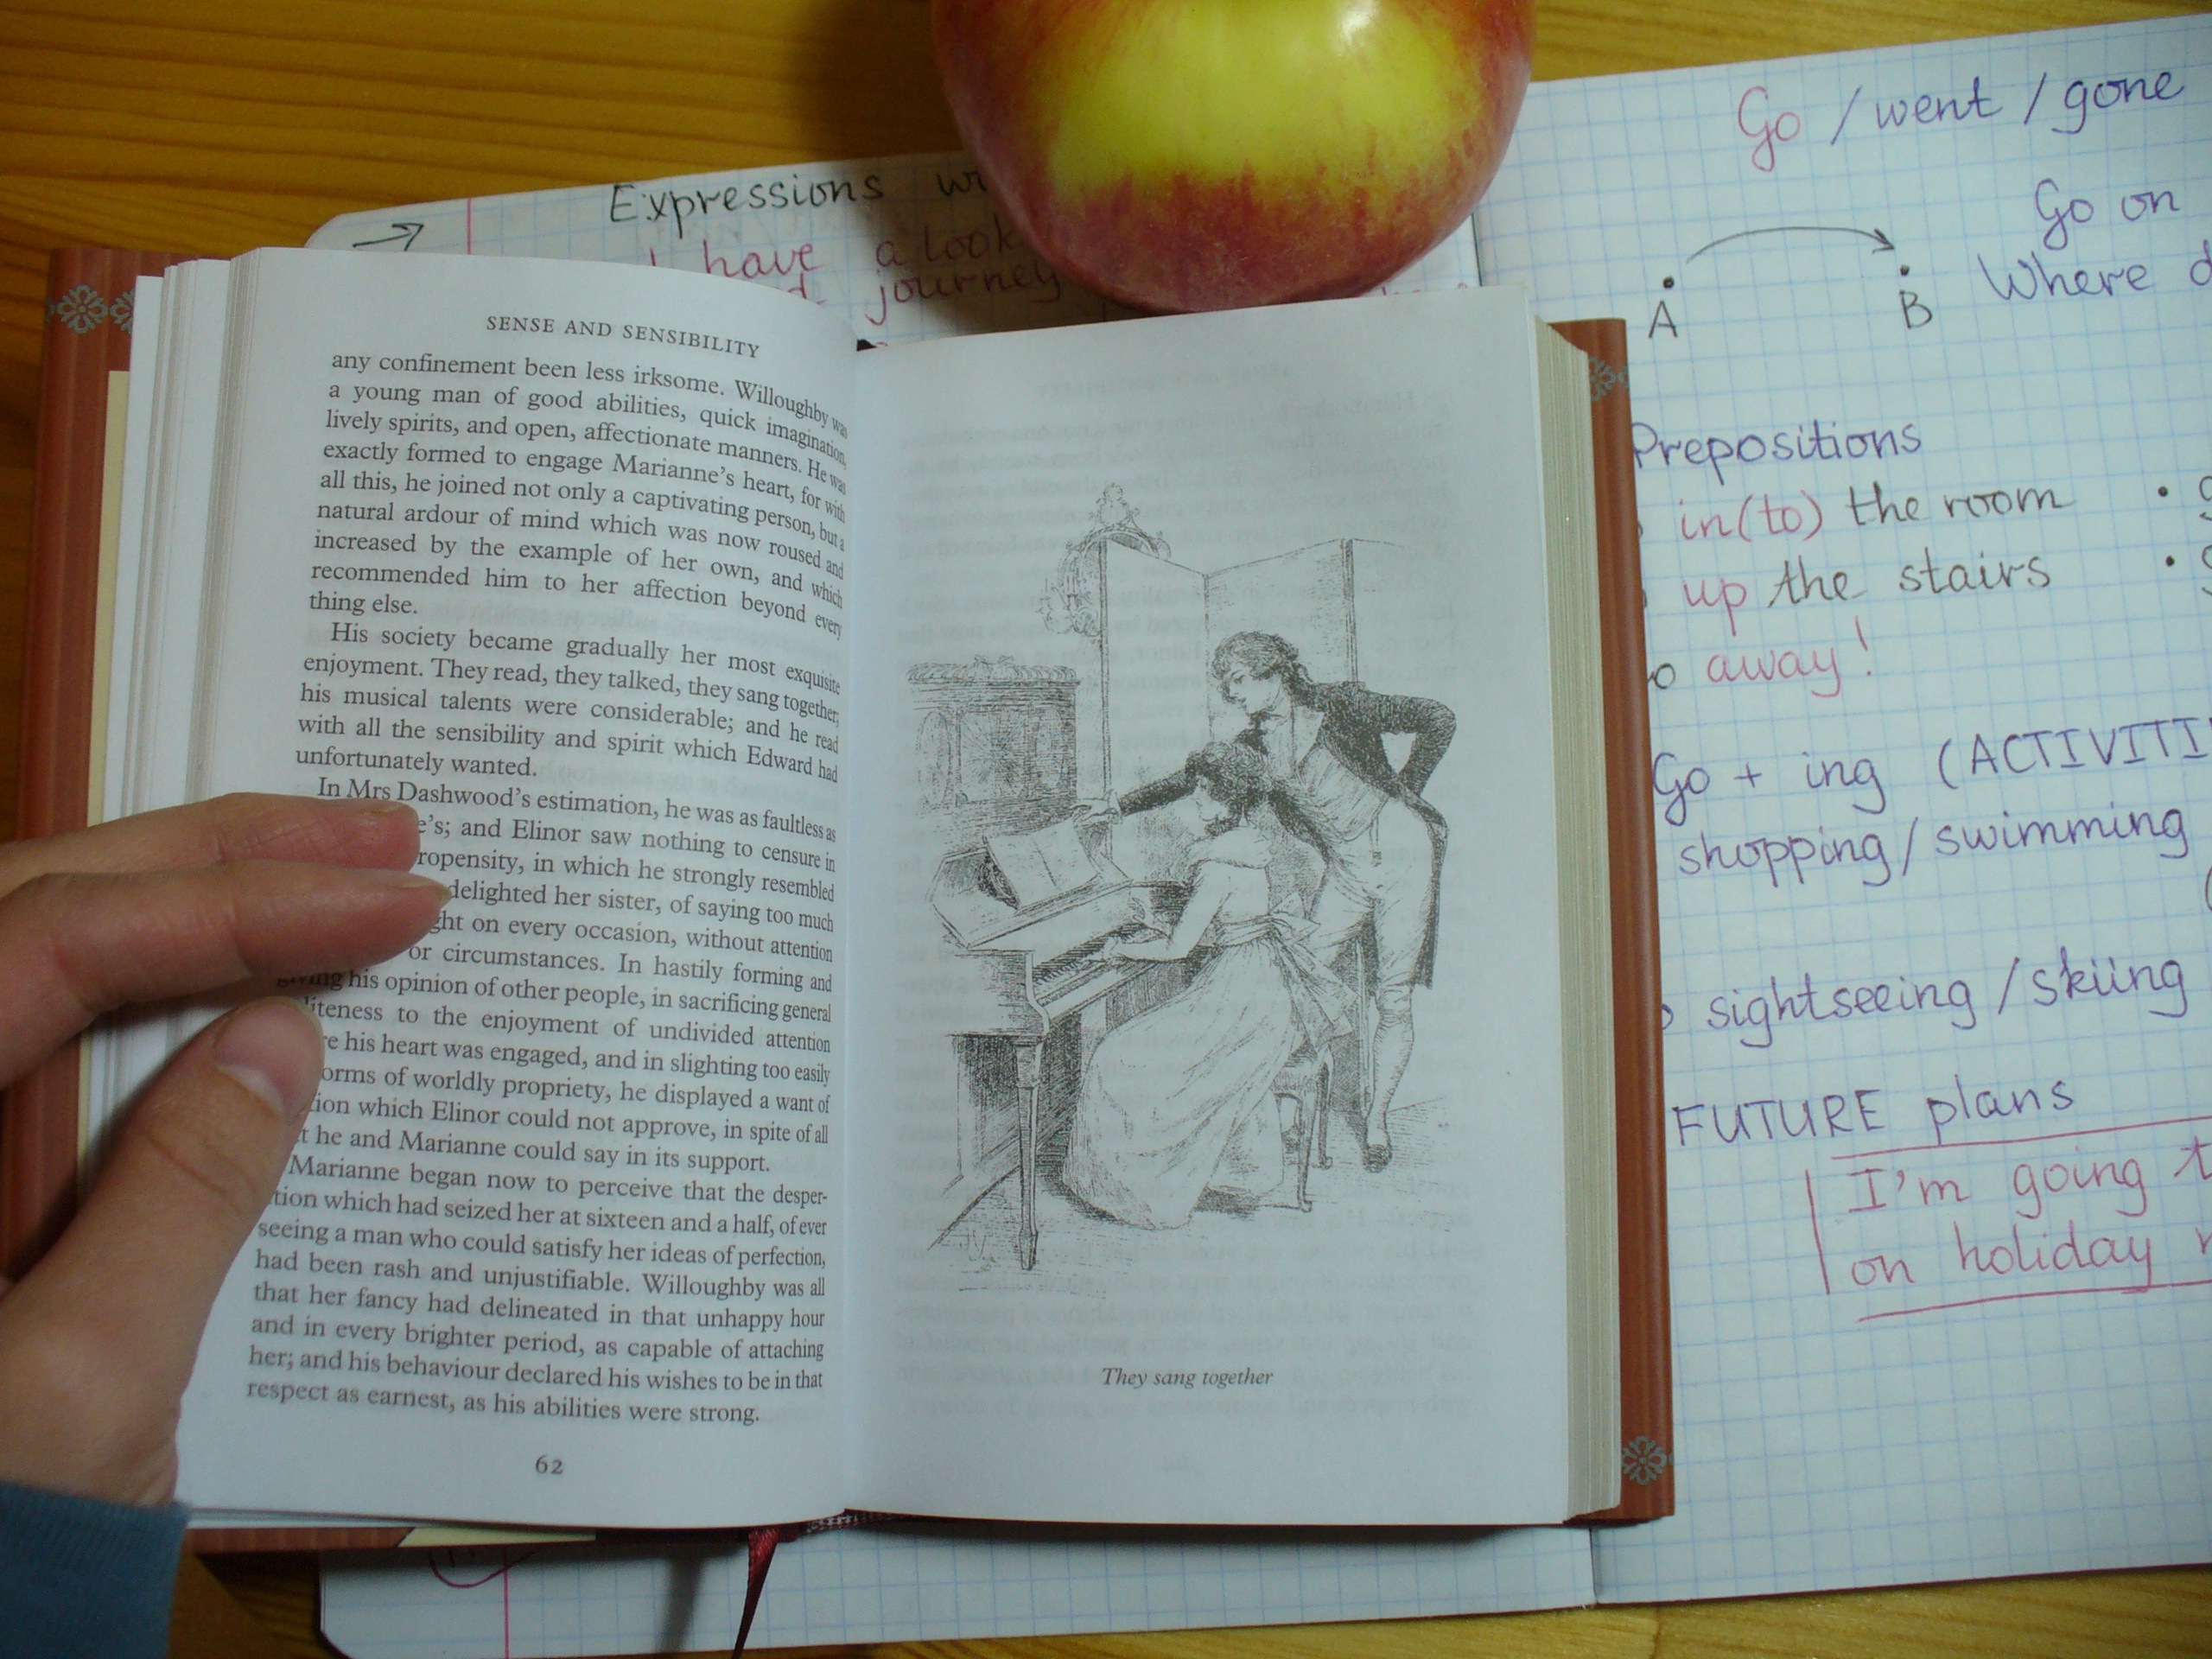 Expressions
have a look
journey
SENSE AND SENSIBILITY
any confinement been less irksome. Willoughby was
a young man of good abilities, quick imagination,
lively spirits, and open, affectionate manners. He was
exactly formed to engage Marianne's heart, for with
all this, he joined not only a captivating person, but a
natural ardour of mind which was now roused and
increased by the example of her own, and which
recommended him to her affection beyond every
thing else.
His society became gradually her most exquisite
enjoyment. They read, they talked, they sang together;
his musical talents were considerable; and he read
with all the sensibility and spirit which Edward had
unfortunately wanted.
In Mrs Dashwood's estimation, he was as faultless as
e's; and Elinor saw nothing to censure in
ropensity, in which he strongly resembled
delighted her sister, of saying too much
ght on every occasion, without attention
or circumstances. In hastily forming and
giving his opinion of other people, in sacrificing general
liteness to the enjoyment of undivided attention
re his heart was engaged, and in slighting too easily
orms of worldly propriety, he displayed a want of
tion which Elinor could not approve, in spite of all
t he and Marianne could say in its support.
Marianne began now to perceive that the desper-
tion which had seized her at sixteen and a half, of ever
seeing a man who could satisfy her ideas of perfection,
had been rash and unjustifiable. Willoughby was all
that her fancy had delineated in that unhappy hour
and in every brighter period, as capable of attaching
her; and his behaviour declared his wishes to be in that
respect as earnest, as his abilities were strong.
62
They sang together
Go / went / gone
Go on
A B Where
Prepositions
in(to) the room
up the stairs
away!
Go + ing (ACTIVITI
shopping / swimming
sightseeing / skiing
FUTURE plans
I'm going t
on holiday